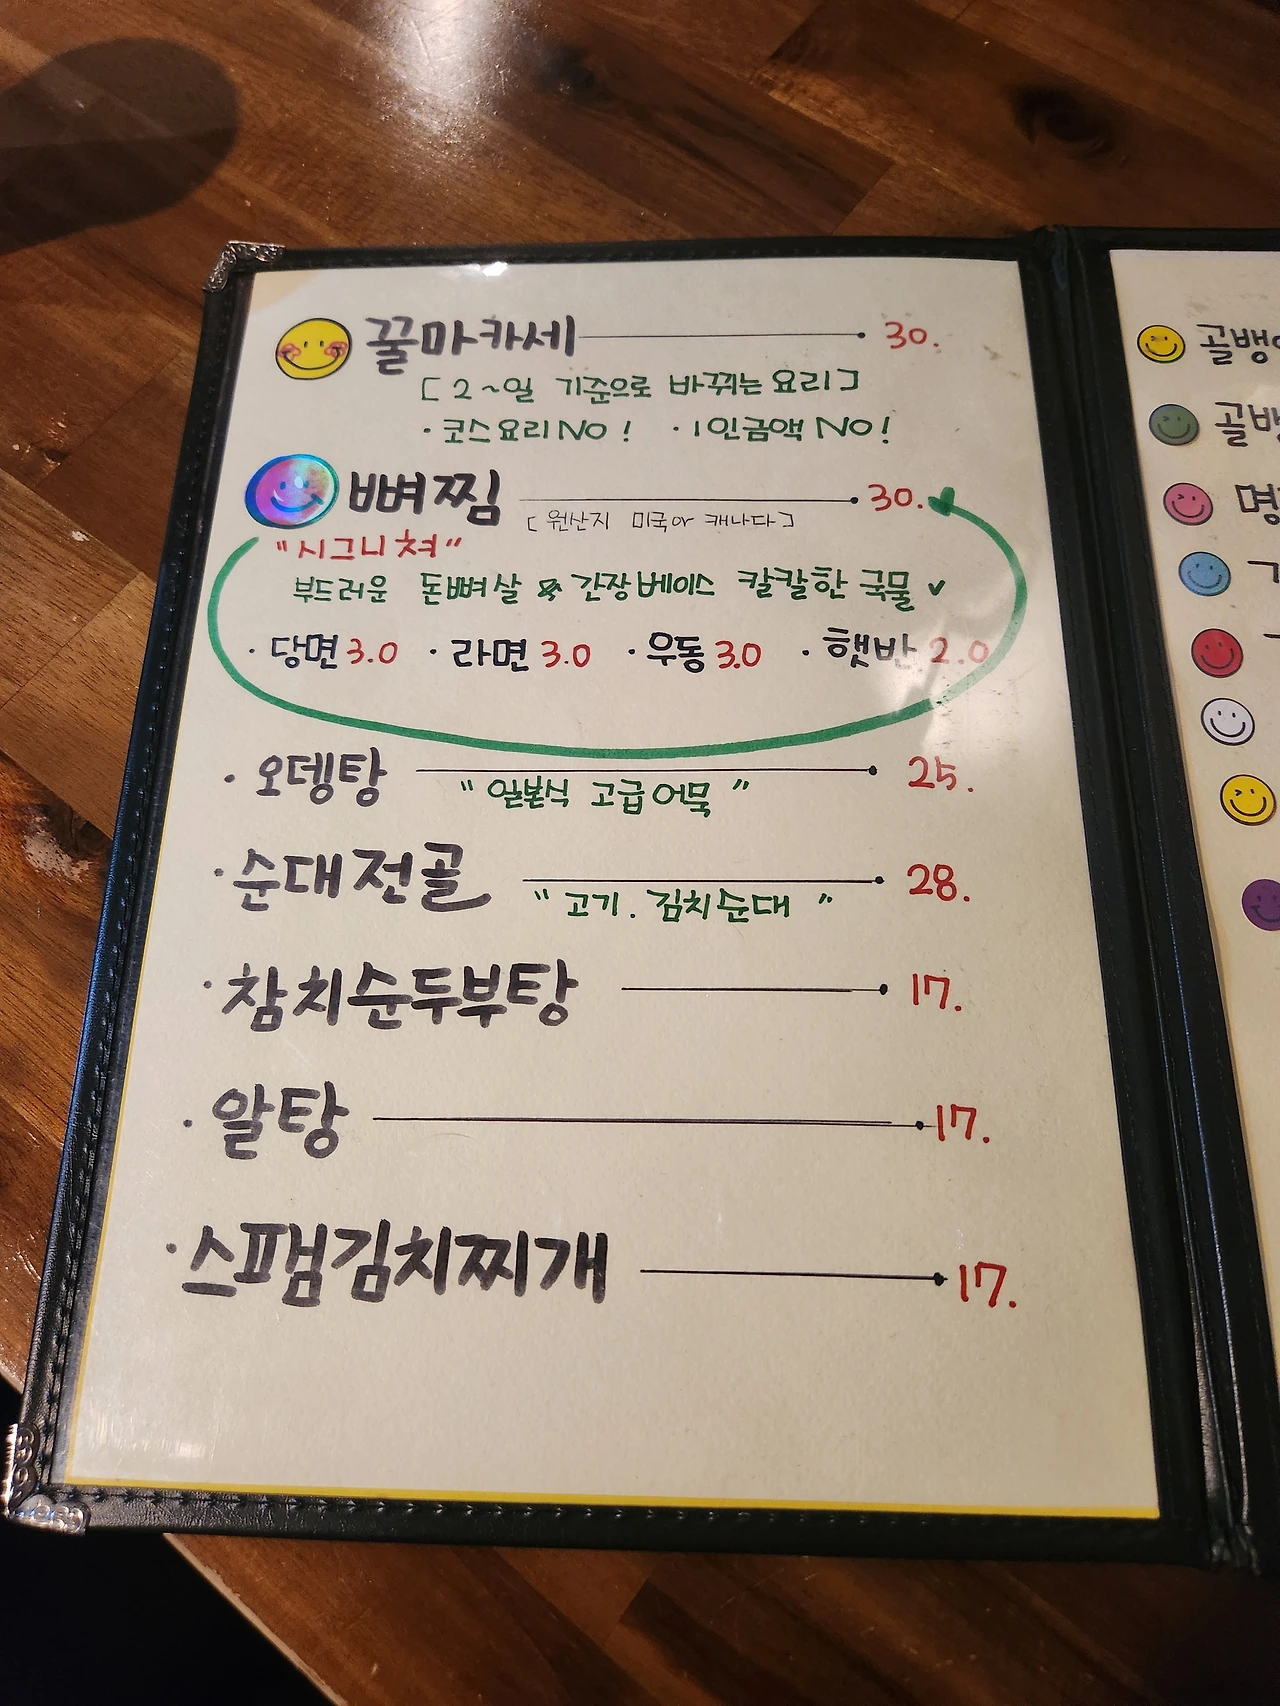 꿀마카세 30.
[2~일 기준으로 바뀌는 요리]
·코스요리 NO! ·1인금액 NO!
뼈찜 30.
[원산지 미국or 캐나다]
"시그니쳐"
부드러운 돈뼈살 & 간장베이스 칼칼한 국물 ✓
·당면 3.0 ·라면 3.0 ·우동 3.0 ·햇반 2.0
·오뎅탕 25.
"일본식 고급어묵"
·순대전골 28.
"고기. 김치순대"
·참치순두부탕 17.
·알탕 17.
·스팸김치찌개 17.
골뱅
골뱅